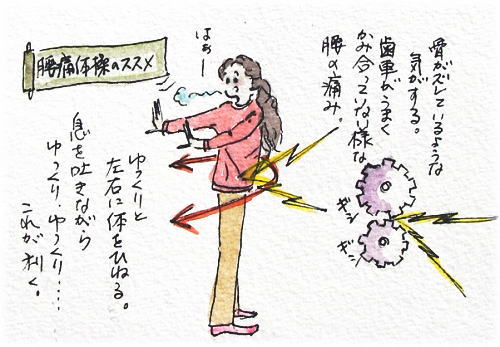 腰痛体操のススメ
骨がズレているような
気がする。
歯車がうまく
かみ合っていない様な
腰の痛み。
ギシ
ギシ
はぁー
ゆっくりと
左右に体をひねる。
息を吐きながら
ゆっくり・ゆっくり……
これが利く。